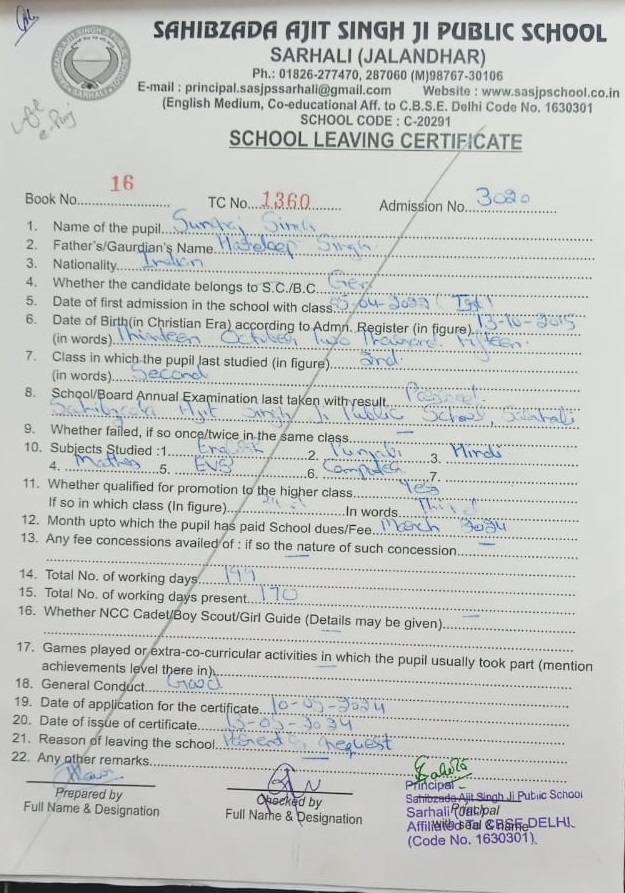 SAHIBZADA AJIT SINGH JI PUBLIC SCHOOL
SARHALI (JALANDHAR)
Ph.: 01826-277470, 287060 (M)98767-30106
E-mail : principal.sasjpssarhali@gmail.com Website : www.sasjpschool.co.in
(English Medium, Co-educational Aff. to C.B.S.E. Delhi Code No. 1630301
SCHOOL CODE : C-20291
SCHOOL LEAVING CERTIFICATE
Book No. 16 TC No. 1360 Admission No. 3020
1. Name of the pupil Singh
2. Father's/Gaurdian's Name Singh
3. Nationality Indian
4. Whether the candidate belongs to S.C./B.C. Gen
5. Date of first admission in the school with class 04-2022 (Ist)
6. Date of Birth(in Christian Era) according to Admn. Register (in figure) 13-10-2015
(in words) Thirteen October Two Thousand Fifteen
7. Class in which the pupil last studied (in figure) 2nd
(in words) Second
8. School/Board Annual Examination last taken with result Passed
Sahibzada Ajit Singh Ji Public School, Sarhali
9. Whether failed, if so once/twice in the same class —
10. Subjects Studied :1. English 2. Punjabi 3. Hindi
4. Maths 5. EVS 6. Computer 7.
11. Whether qualified for promotion to the higher class Yes
If so in which class (In figure) In words Third
12. Month upto which the pupil has paid School dues/Fee March 2024
13. Any fee concessions availed of : if so the nature of such concession —
14. Total No. of working days 199
15. Total No. of working days present 170
16. Whether NCC Cadet/Boy Scout/Girl Guide (Details may be given) —
17. Games played or extra-co-curricular activities in which the pupil usually took part (mention
achievements level there in) —
18. General Conduct Good
19. Date of application for the certificate 10-05-2024
20. Date of issue of certificate 13-05-2024
21. Reason of leaving the school Parents request
22. Any other remarks —
Prepared by
Full Name & Designation
Checked by
Full Name & Designation
Principal
Sahibzada Ajit Singh Ji Public School
Sarhali (Jal.)
Principal
Affiliated to CBSE DELHI.
with seal & name
(Code No. 1630301).